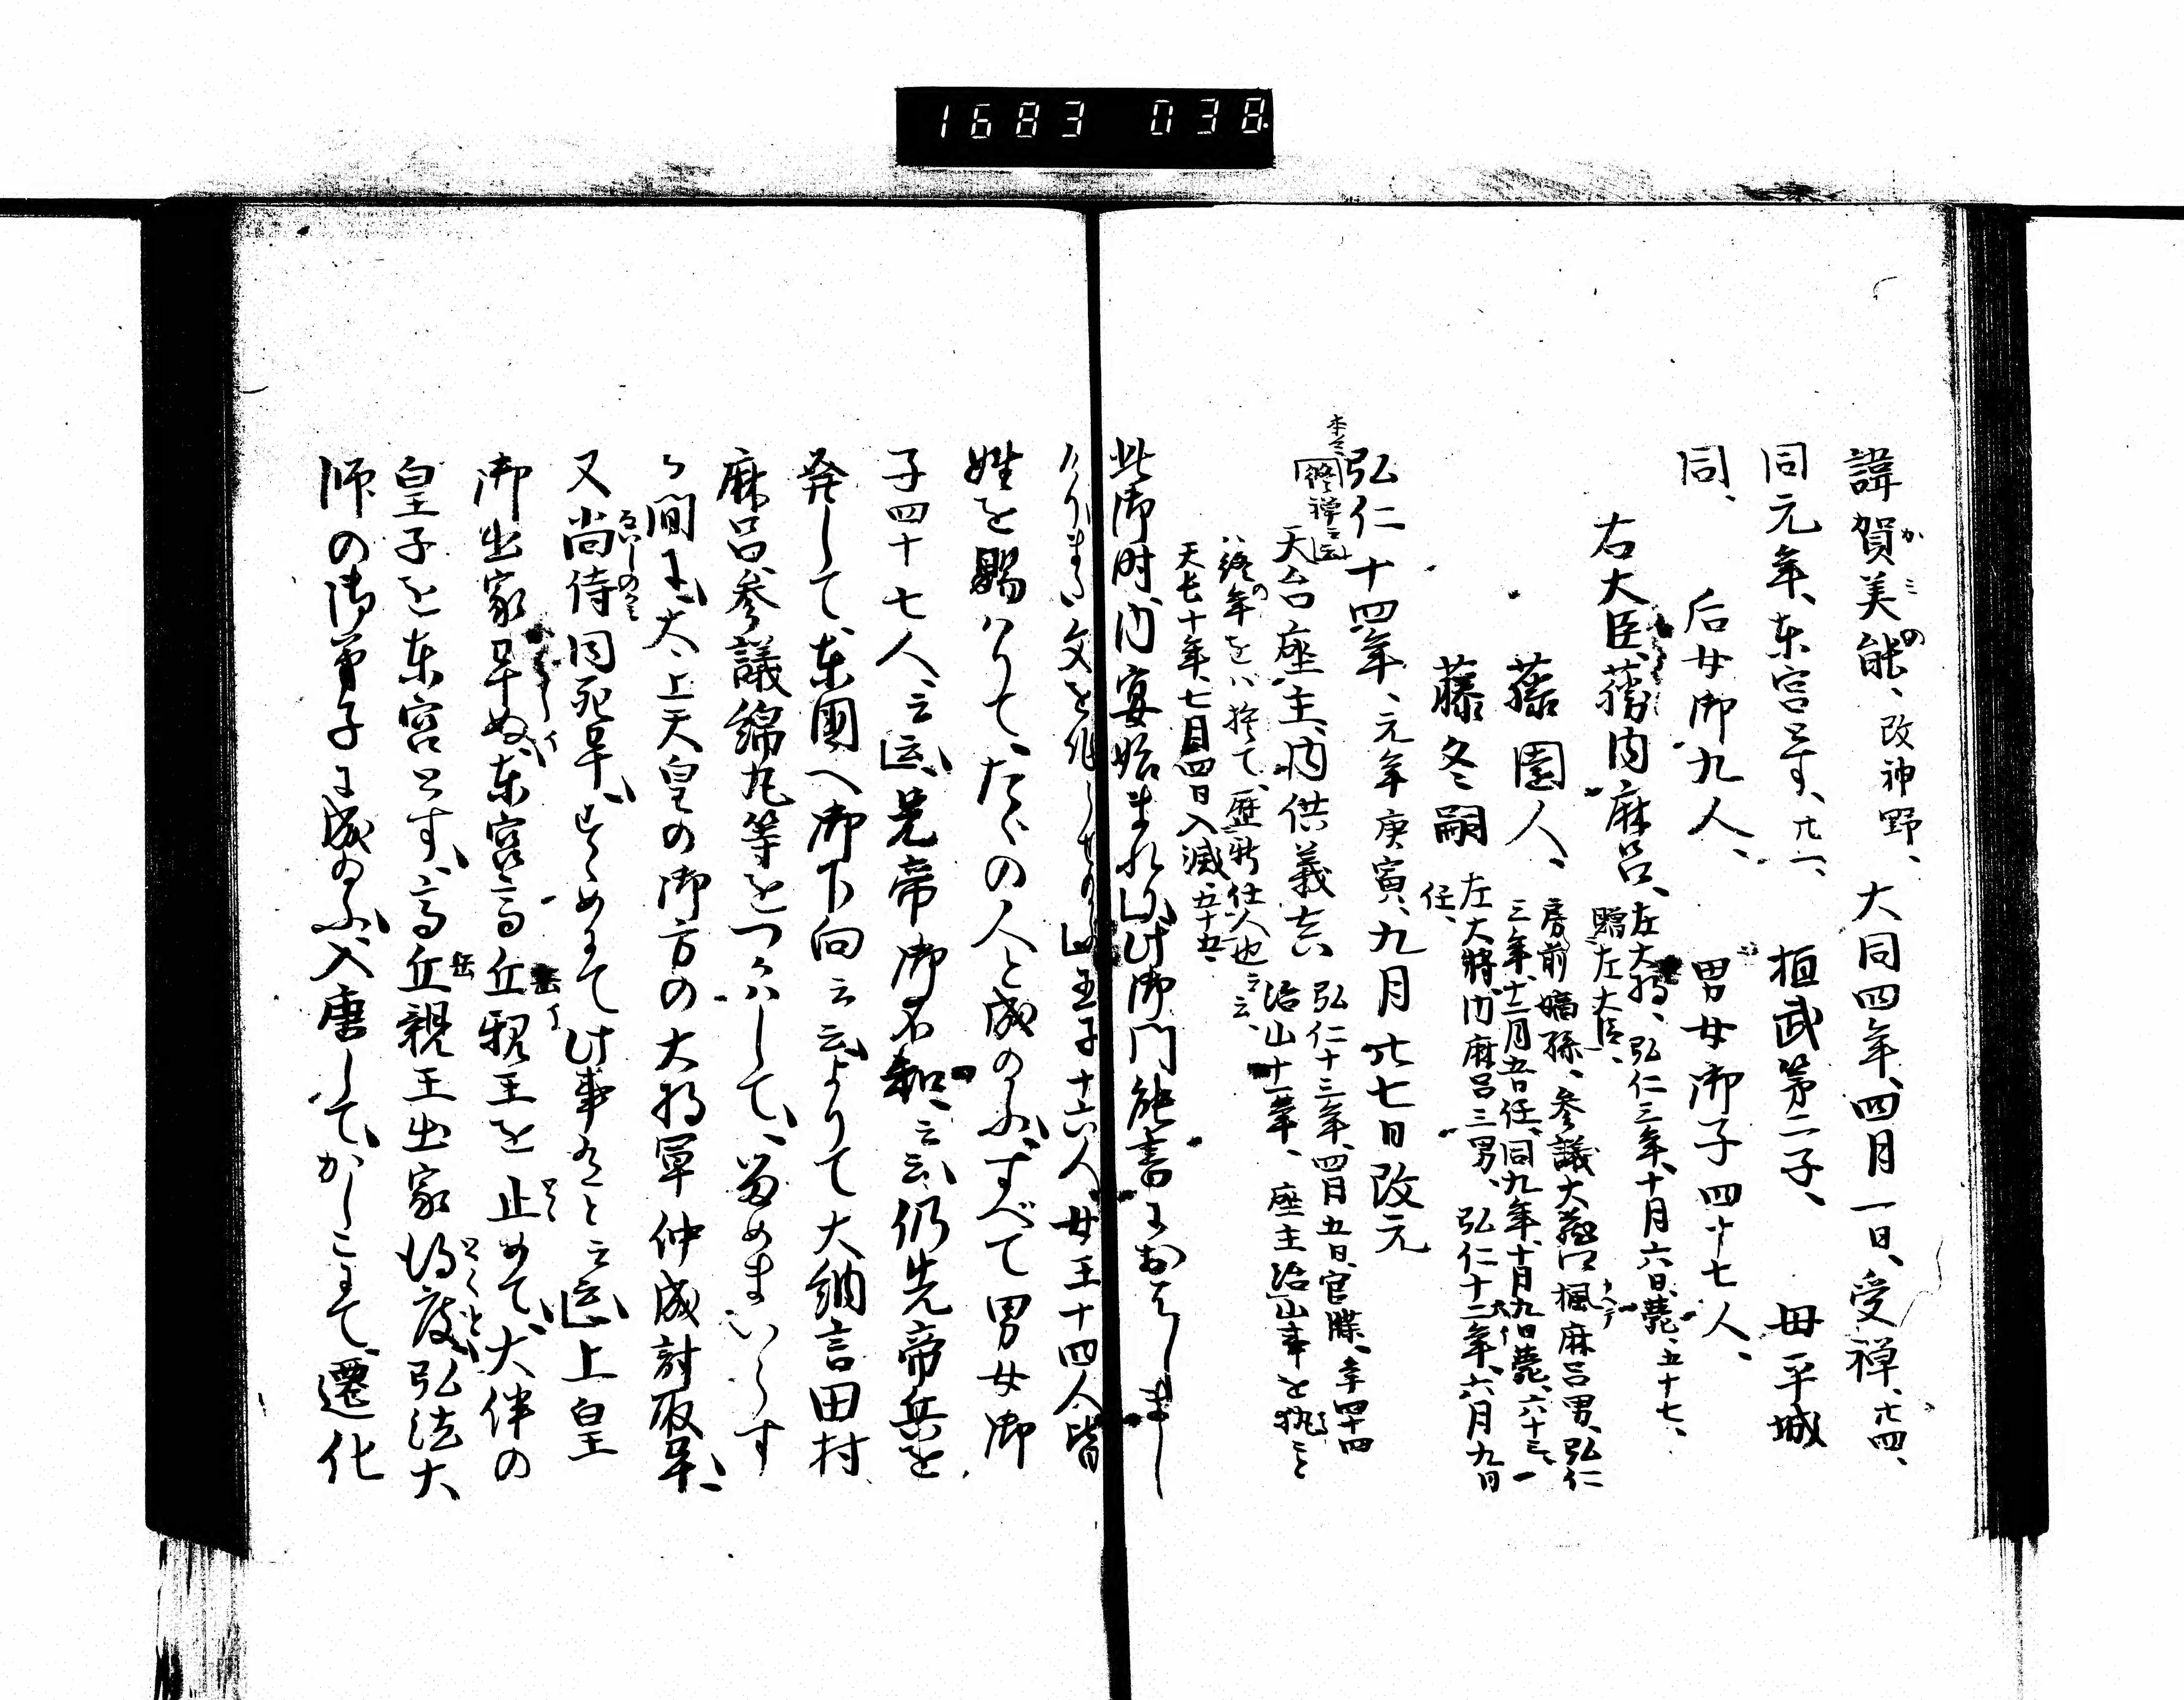 1683 038.
諱賀美能、改神野、大同四年、四月一日、受禅、廿四、
かみの
同元年、東宮とす、廿一、桓武第二子、母平城
同、后女御九人、男女御子四十七人、
右大臣、藤内麻呂、左大将、弘仁三年、十月六日、薨、五十七、
贈左大臣、
藤園人、房前嫡孫、参議大蔵卿楓麻呂男、弘仁
三年、十二月五日任、同九年、十月九日薨、六十三、
藤冬嗣 左大将、内麻呂三男、弘仁十二年、六月九日
任、
弘仁十四年、元年庚寅、九月廿七日改元
天台座主、内供義真 弘仁十三年、四月五日、官牒、年四十四
治山十一年、座主治山事を執こと
終年をハ捨て、歴新任人也云云、
天長十年、七月四日入滅、五十五、
此御時、内宴始まれり、此御門能書におはしまし
文を作
皇子十六人、女王十四人、皆
姓を賜ハりて、たゞの人と成のふ、すべて男女御
子四十七人云云、兄帝御不和云云、仍先帝兵を
発して、東國へ御下向云云、よりて大納言田村
麻呂、参議綿丸等をつかハして、留めまいらす
る間に、太上天皇の御方の大将軍仲成討取畢、
又尚侍同死畢、すゝめにて此事有と云云、上皇
御出家畢ぬ、東宮高丘親王を止めて、大伴の
皇子を東宮とす、高丘親王出家得度、弘法大
師の御弟子に成のふ、入唐して、かしこにて、遷化